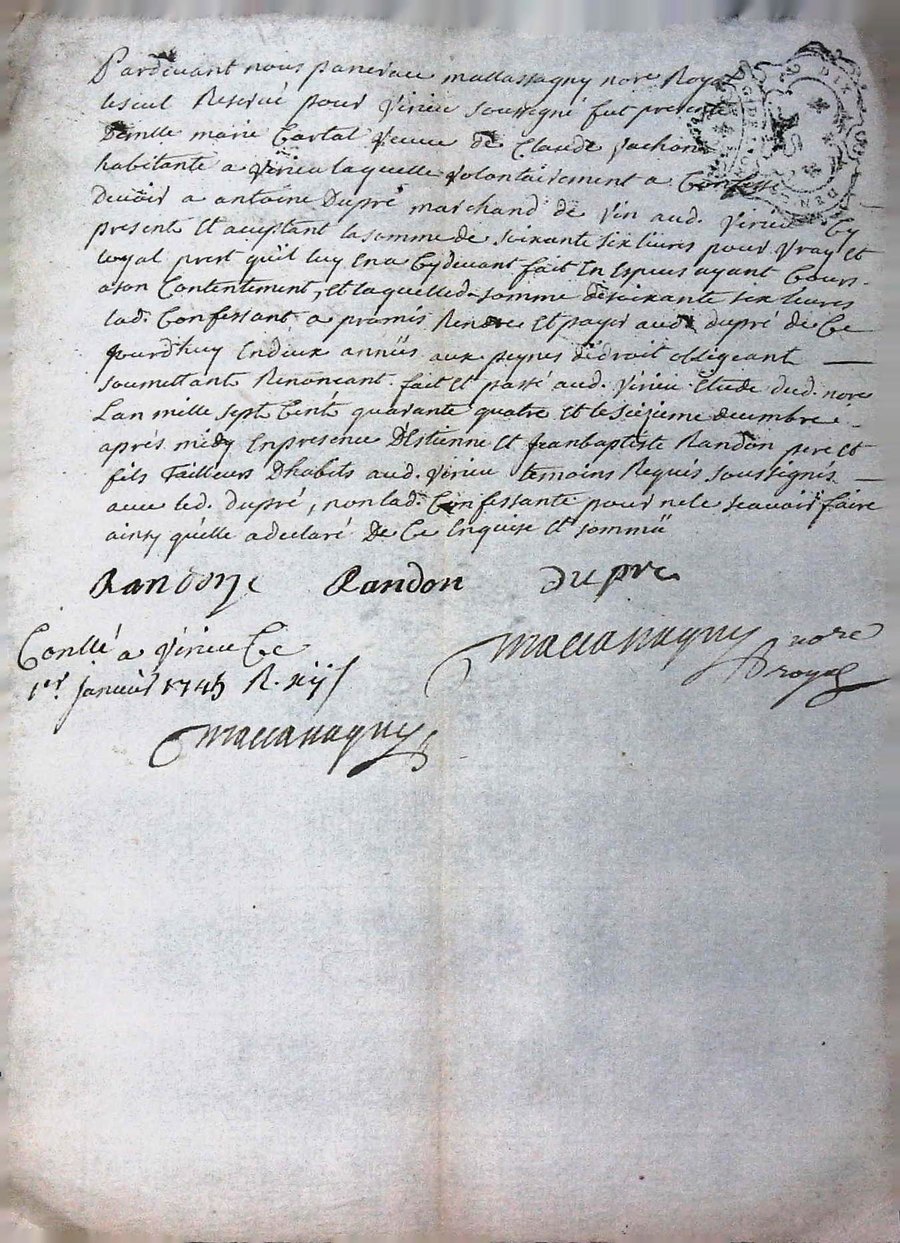 Pardevant nous pancrace mallassagny nore Royal
le seul Reservé pour Virieu soussigné fut presente
Demlle marie Cartal Veuve de Claude Vachon
habitante a Virieu laquelle Volontairement a Confessé
Devoir a antoine Dupré marchand de Vin aud. Virieu Cy
present Et aceptant la somme de soixante six livres pour Vray et
loyal prest qu'il luy En a Cy devant fait En Especes ayant Cours
a son Contentement, et laquelle d. somme de soixante six livres
lad. Confessant a promis Rendre Et payer aud. dupré de Ce
jourdhuy En deux années aux peynes de droit obligeant —
soumettant Renoncant. fait et passé aud. Virieu Etude dud. nore
Lan mille sept Cent quarante quatre et le seizieme decembre
aprés midy En presence DEstienne Et Jean baptiste Randon pere et
fils Tailleurs Dhabits aud. Virieu temoins Requis soussignés —
avec led. Dupré, non lad. Confessante pour ne le scavoir faire
ainsy quelle a declaré De Ce Enquise Et sommée
Randon Randon dupre
Conllé a Virieu Ce
1er Janvier 1745 R. xij s
mallassagny nore
royal
mallassagny